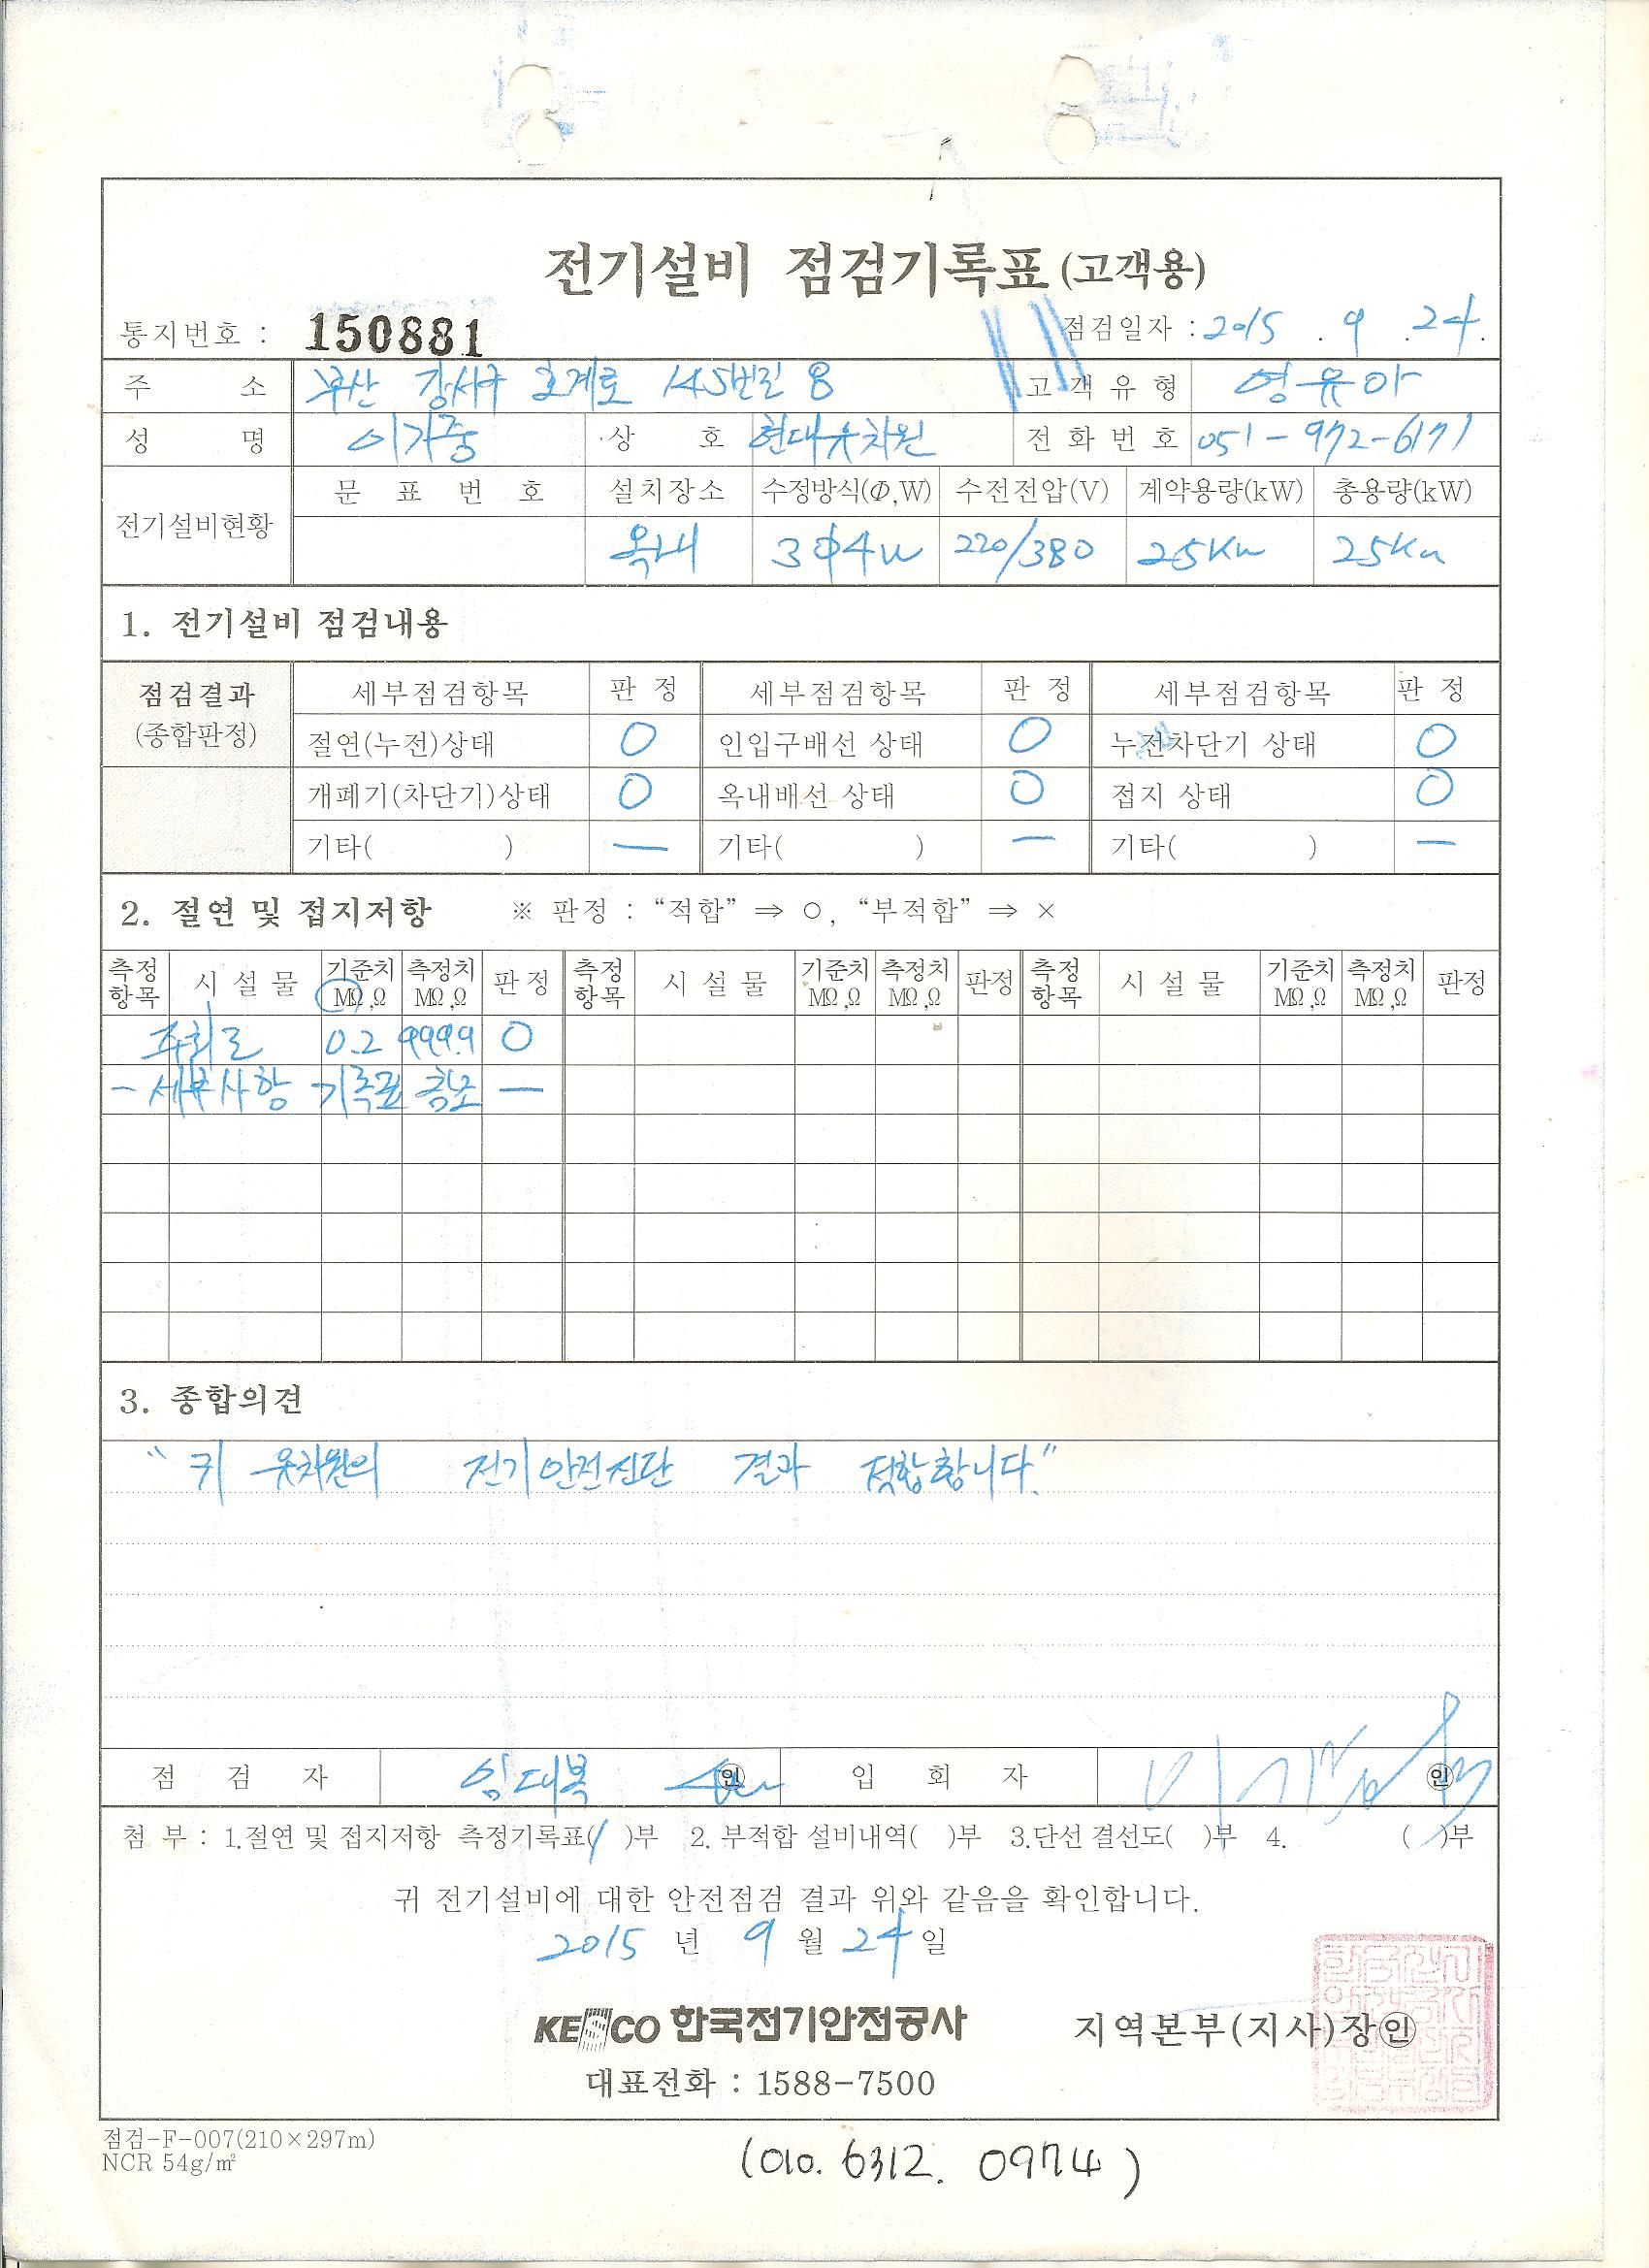 전기설비 점검기록표(고객용)
통지번호 : 150881 점검일자 : 2015 . 9 . 24.
주 소 부산 강서구 호계로 145번길 8 고객유형 영유아
성 명 이가중 상 호 현대유치원 전화번호 051-972-6171
전기설비현황 문표번호 설치장소 수정방식(Φ,W) 수전전압(V) 계약용량(kW) 총용량(kW)
옥내 3Φ4W 220/380 25Kw 25Kw
1. 전기설비 점검내용
점검결과 (종합판정) 세부점검항목 판정 세부점검항목 판정 세부점검항목 판정
절연(누전)상태 ○ 인입구배선 상태 ○ 누전차단기 상태 ○
개폐기(차단기)상태 ○ 옥내배선 상태 ○ 접지 상태 ○
기타( ) — 기타( ) — 기타( ) —
2. 절연 및 접지저항 ※ 판정 : “적합” ⇒ ○, “부적합” ⇒ ×
측정항목 시설물 기준치 MΩ,Ω 측정치 MΩ,Ω 판정 측정항목 시설물 기준치 MΩ,Ω 측정치 MΩ,Ω 판정 측정항목 시설물 기준치 MΩ,Ω 측정치 MΩ,Ω 판정
주회로 0.2 999.9 ○
- 세부사항 기록표 참조 —
3. 종합의견
“귀 유치원의 전기안전진단 결과 적합합니다.”
점 검 자 임대복 인 입 회 자 인
첨 부 : 1.절연 및 접지저항 측정기록표( 1 )부 2. 부적합 설비내역( )부 3.단선 결선도( )부 4. ( )부
귀 전기설비에 대한 안전점검 결과 위와 같음을 확인합니다.
2015 년 9 월 24 일
KESCO 한국전기안전공사 지역본부(지사)장㊞
대표전화 : 1588-7500
점검-F-007(210×297m)
NCR 54g/㎡
(010. 6312. 0974)